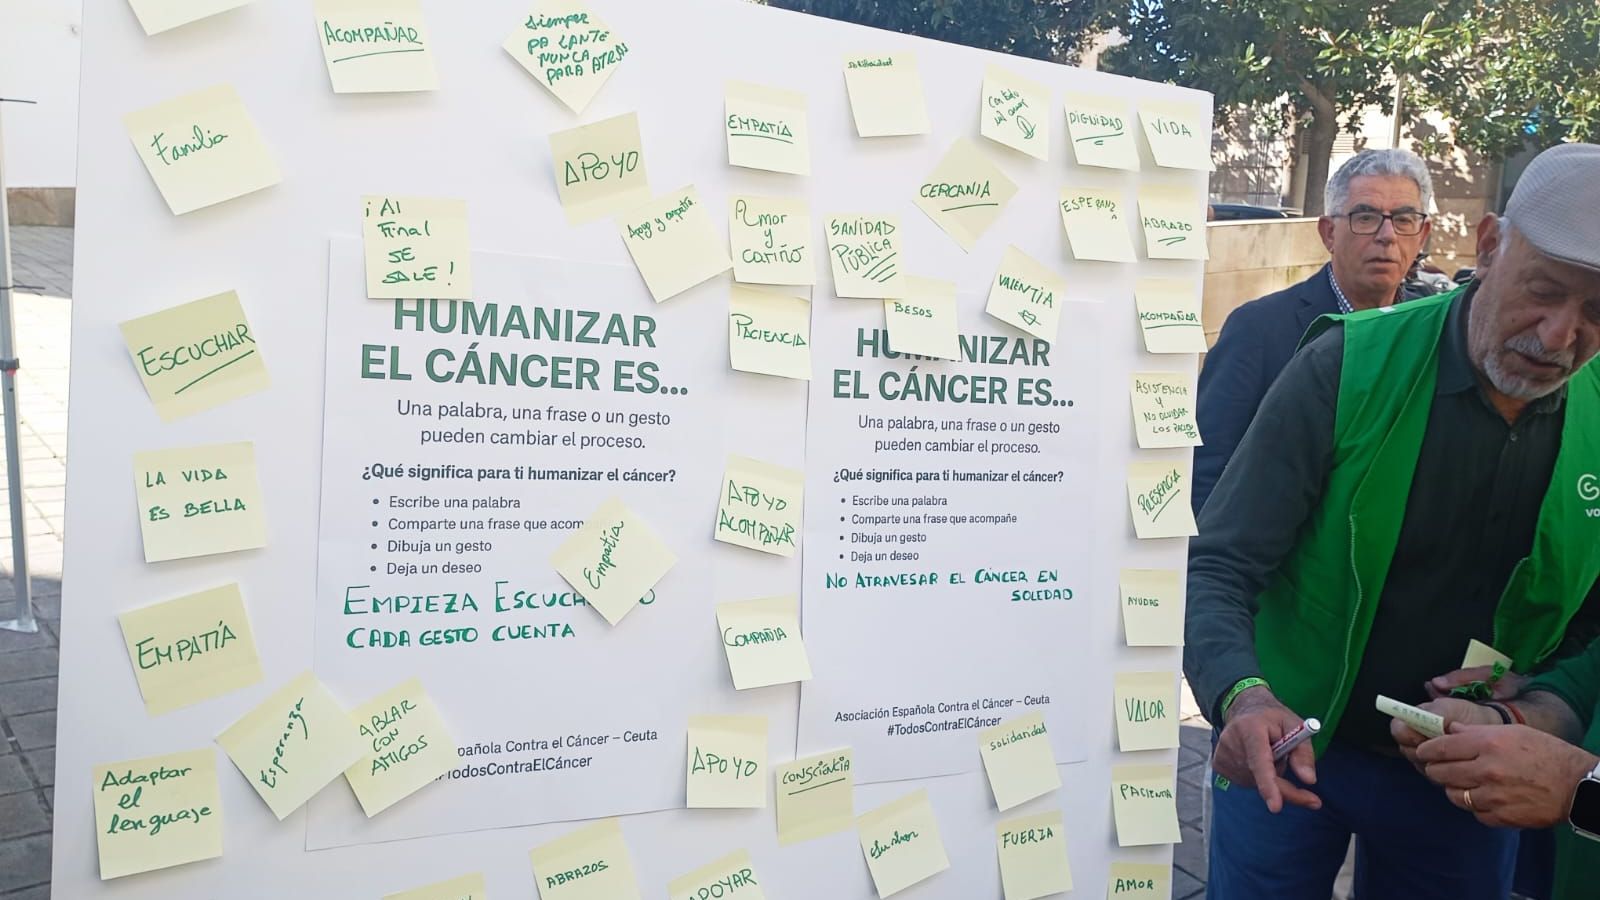 ACOMPAÑAR
Siempre
PA LANTE
NUNCA
PARA ATRAS
solidaridad
Con todo
el amor
DIGNIDAD
VIDA
Familia
EMPATÍA
APOYO
CERCANIA
¡Al
Final
SE
SALE!
Apoyo y empatía
Amor
y
cariño
SANIDAD
PÚBLICA
ESPERANZA
ABRAZO
ESCUCHAR
PACIENCIA
BESOS
VALENTIA
ACOMPAÑAR
HUMANIZAR
EL CÁNCER ES...
Una palabra, una frase o un gesto
pueden cambiar el proceso.
¿Qué significa para ti humanizar el cáncer?
• Escribe una palabra
• Comparte una frase que acompañ
• Dibuja un gesto
• Deja un deseo
EMPIEZA ESCUCH O
CADA GESTO CUENTA
pañola Contra el Cáncer – Ceuta
#TodosContraElCáncer
HU NIZAR
EL CÁNCER ES...
Una palabra, una frase o un gesto
pueden cambiar el proceso.
¿Qué significa para ti humanizar el cáncer?
• Escribe una palabra
• Comparte una frase que acompañe
• Dibuja un gesto
• Deja un deseo
NO ATRAVESAR EL CÁNCER EN
SOLEDAD
Asociación Española Contra el Cáncer – Ceuta
#TodosContraElCáncer
ASISTENCIA
Y
NO OLVIDAR
LOS PACIENTES
LA VIDA
ES BELLA
APOYO
ACOMPAÑAR
PRESENCIA
Empatía
EMPATÍA
COMPAÑIA
AYUDAS
Esperanza
ABLAR
CON
AMIGOS
VALOR
Adaptar
el
lenguaje
APOYO
CONSCIENCIA
solidaridad
PACIENCIA
FUERZA
ABRAZOS
APOYAR
AMOR
vo